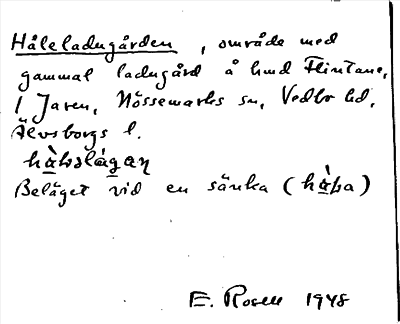 Håleladugården, område med
gammal ladugård å hmd Flintane,
1 Jaren, Nössemarks sn, Vedbo hd,
Älvsborgs l.
Beläget vid en sänka (
E. Rosell 1948